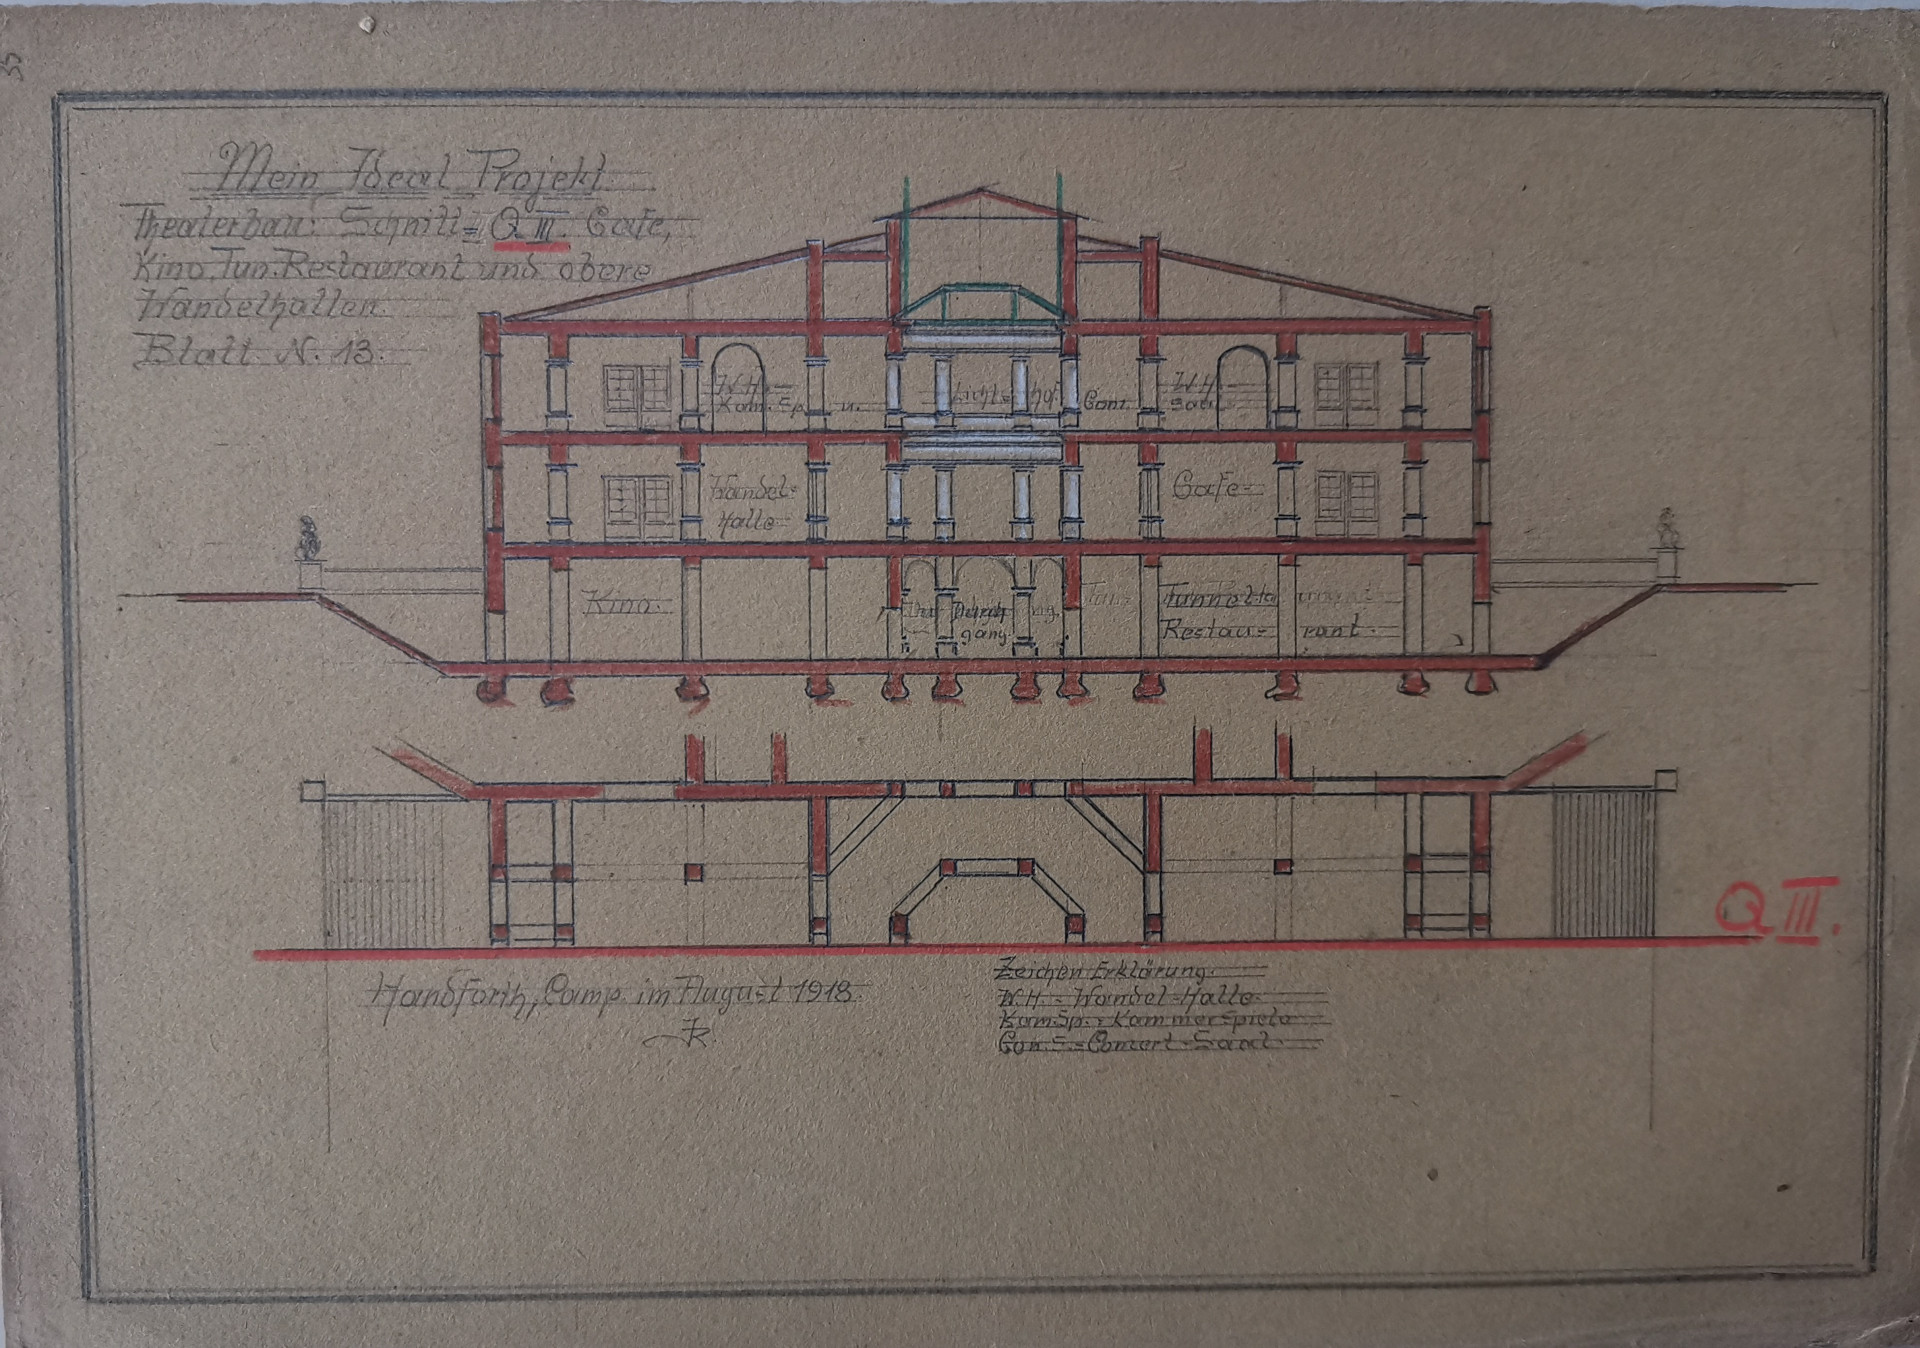 35
Mein Ideal Projekt.
Theaterbau: Schnitt = Q III. Cafe,
Kino, Tun. Restaurant und obere
Wandelhallen.
Blatt N. 13.
W.H.
Kam. Sp. u.
Licht-hof.
Con.
W.H.
Saal
Wandel-
Halle
Cafe
Kino.
Durch
gang
Tunnel
Restau- rant.
Q III.
Handforth, Camp. im August 1918.
JR.
Zeichen Erklärung.
W.H. = Wandel-Halle.
Kam.Sp. = Kammerspiele
Con. S. = Conzert-Saal.